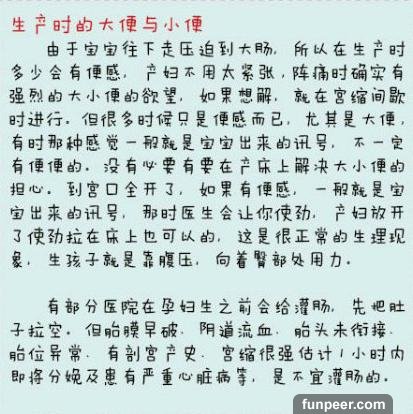 生产时的大便与小便
由于宝宝往下走压迫到大肠，所以在生产时
多少会有便感，产妇不用太紧张，阵痛时确实有
强烈的大小便的欲望，如果想解，就在宫缩间歇
时进行。但很多时候只是便感而已，尤其是大便，
有时那种感觉一般就是宝宝出来的讯号，不一定
有便便的。没有必要有要在产床上解决大小便的
担心。到宫口全开了，如果有便感，一般就是宝
宝出来的讯号，那时医生会让你使劲，产妇放开
了使劲拉在床上也可以的，这是很正常的生理现
象，生孩子就是靠腹压，向着臀部处用力。
有部分医院在孕妇生之前会给灌肠，先把肚
子拉空。但胎膜早破．阴道流血．胎头未衔接．
胎位异常．有剖宫产史．宫缩很强估计1小时内
即将分娩及患有严重心脏病等，是不宜灌肠的。
funpeer.com